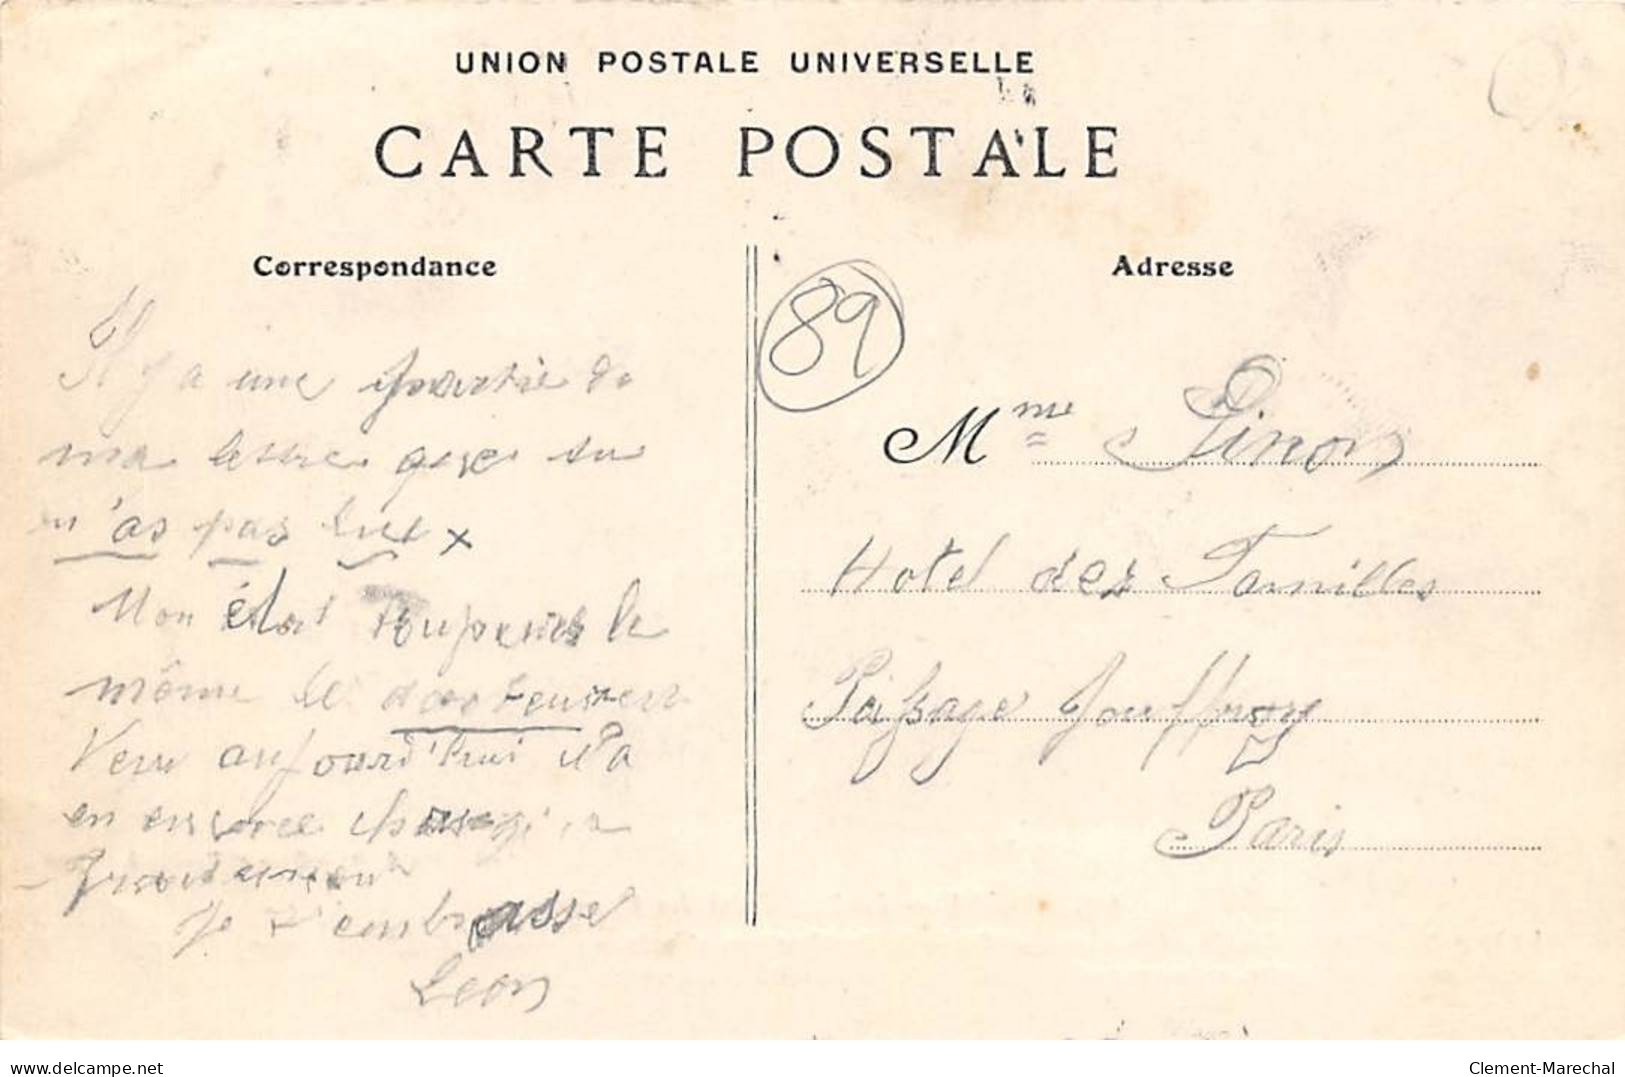 UNION POSTALE UNIVERSELLE
CARTE POSTALE
Correspondance
Adresse
89
Il y a une partie de
ma lettre que tu
n'as pas lue x
Mon état toujours le
même le docteur
Venu aujourd'hui n'a
en encore
Je t'embrasse
Leon
Mme Pinon
Hotel des Familles
Passage Jouffroy
Paris
delcampe.net
Clement-Marechal